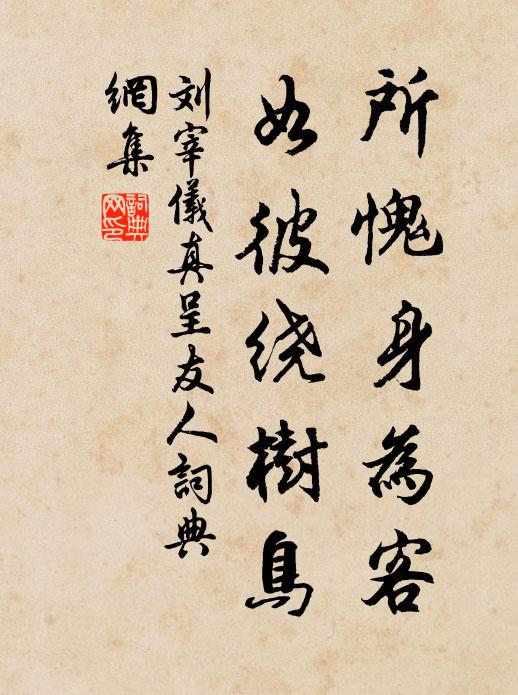 所愧身為客
如彼绕樹鳥
刘宰儀真呈友人詞典
網集
詞典
网印